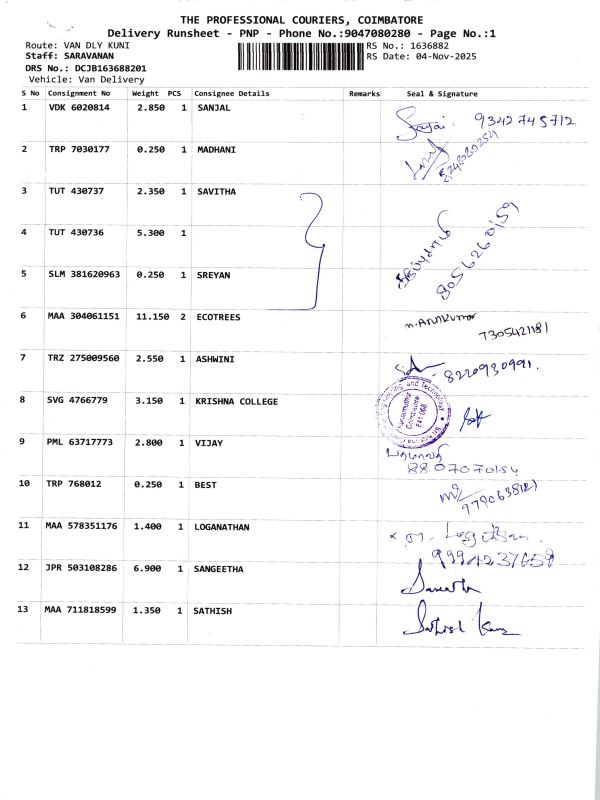 THE PROFESSIONAL COURIERS, COIMBATORE
Delivery Runsheet - PNP - Phone No.:9047080280 - Page No.:1
Route: VAN DLY KUNI RS No.: 1636882
Staff: SARAVANAN RS Date: 04-Nov-2025
DRS No.: DCJB163688201
Vehicle: Van Delivery
S No Consignment No Weight PCS Consignee Details Remarks Seal & Signature
1 VDK 6020814 2.850 1 SANJAL 9342745712
2 TRP 7030177 0.250 1 MADHANI
3 TUT 430737 2.350 1 SAVITHA
4 TUT 430736 5.300 1
5 SLM 381620963 0.250 1 SREYAN 8056260159
6 MAA 304061151 11.150 2 ECOTREES n. ARUNKUMAR
7305421181
7 TRZ 275009560 2.550 1 ASHWINI 8220930991.
8 SVG 4766779 3.150 1 KRISHNA COLLEGE
Coimbatore
641 008
9 PML 63717773 2.800 1 VIJAY
10 TRP 768012 0.250 1 BEST
11 MAA 578351176 1.400 1 LOGANATHAN
12 JPR 503108286 6.900 1 SANGEETHA
13 MAA 711818599 1.350 1 SATHISH Sathish Kumar